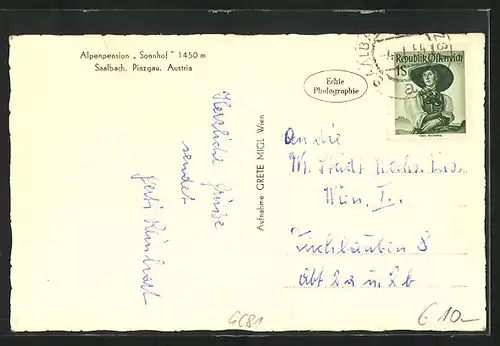 Alpenpension „Sonnhof" 1450 m
Saalbach, Pinzgau, Austria
Echte
Photographie
Republik Österreich
1S
Aufnahme GRETE MIGL Wien
Herzliche Grüsse
sendet
An die
M. Stadt
Wien, I.
Tuchlauben 8
Abt 2a u. 2b
6C81
€ 10.–